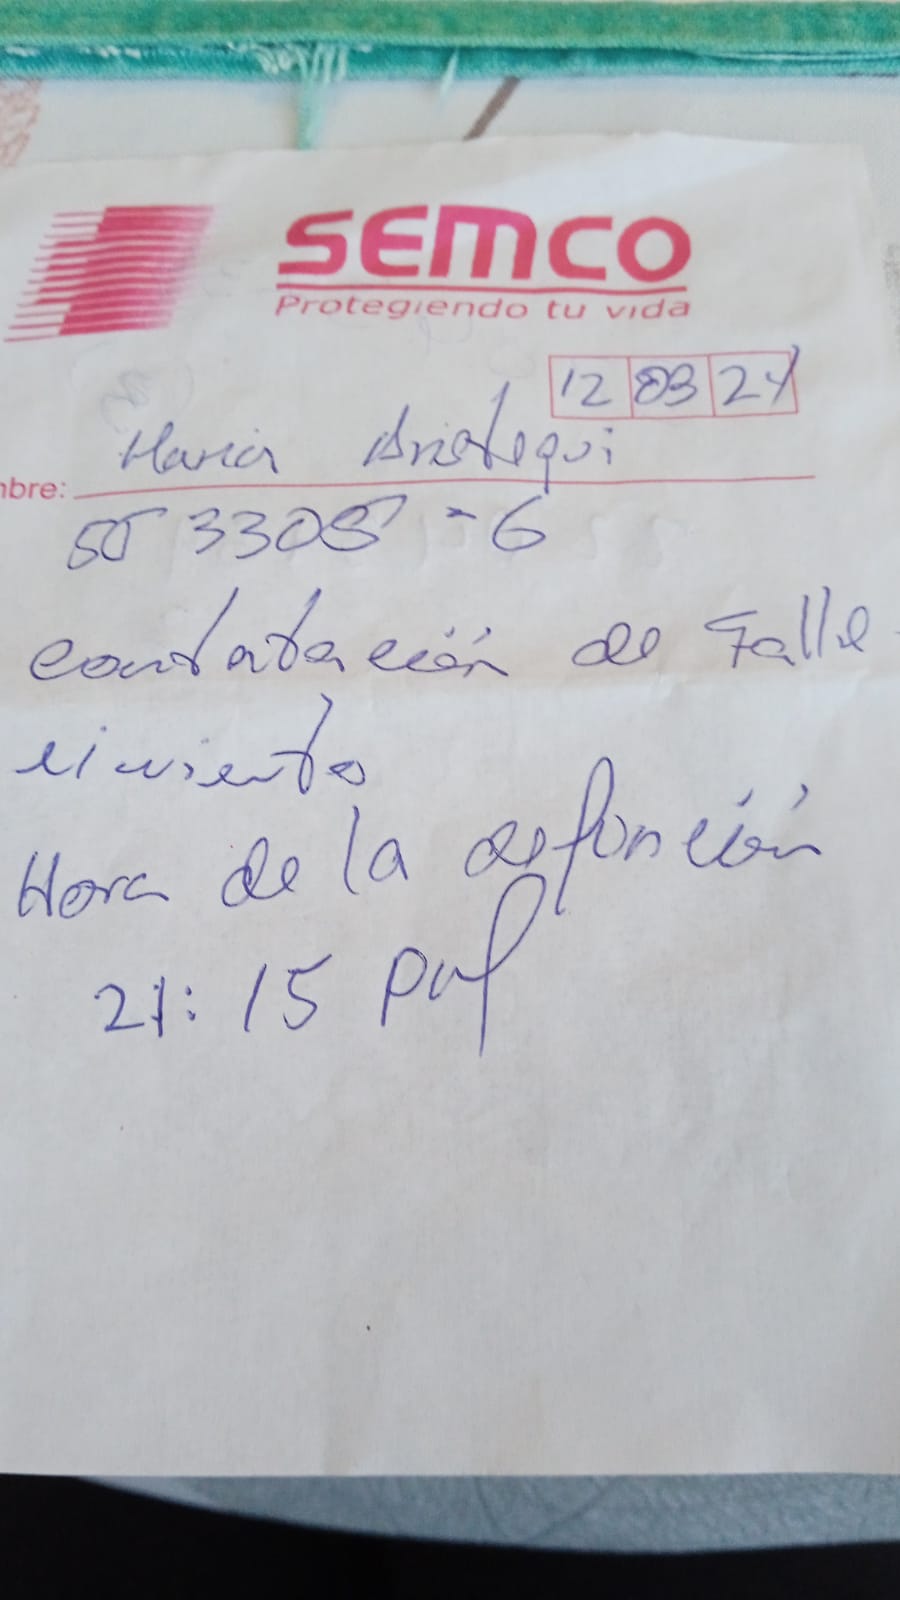 SEMCO
Protegiendo tu vida
12 03 24
mbre: Maria Aristegui
553305-6
constatación de Falle-
cimiento
Hora de la defunción
21:15 pm